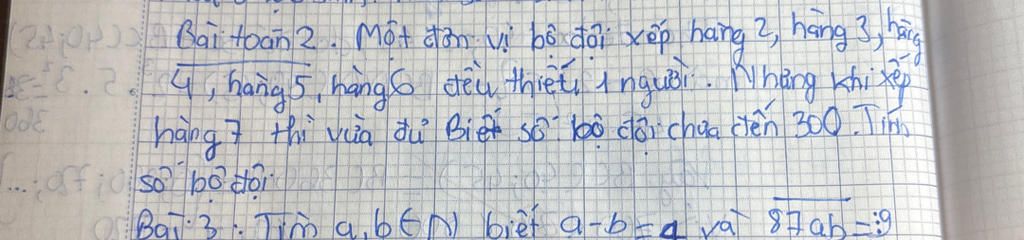 Bài toán 2. Một đơn vị bộ đội xếp hàng 2, hàng 3, hàng
4, hàng 5, hàng 6 đều thiếu 1 người. Nhưng khi xếp
hàng 7 thì vừa đủ Biết số bộ đội chưa đến 300. Tính
số bộ đội
Bài 3. Tìm a, b ∈ N biết a-b=4 và 87ab ⋮ 9